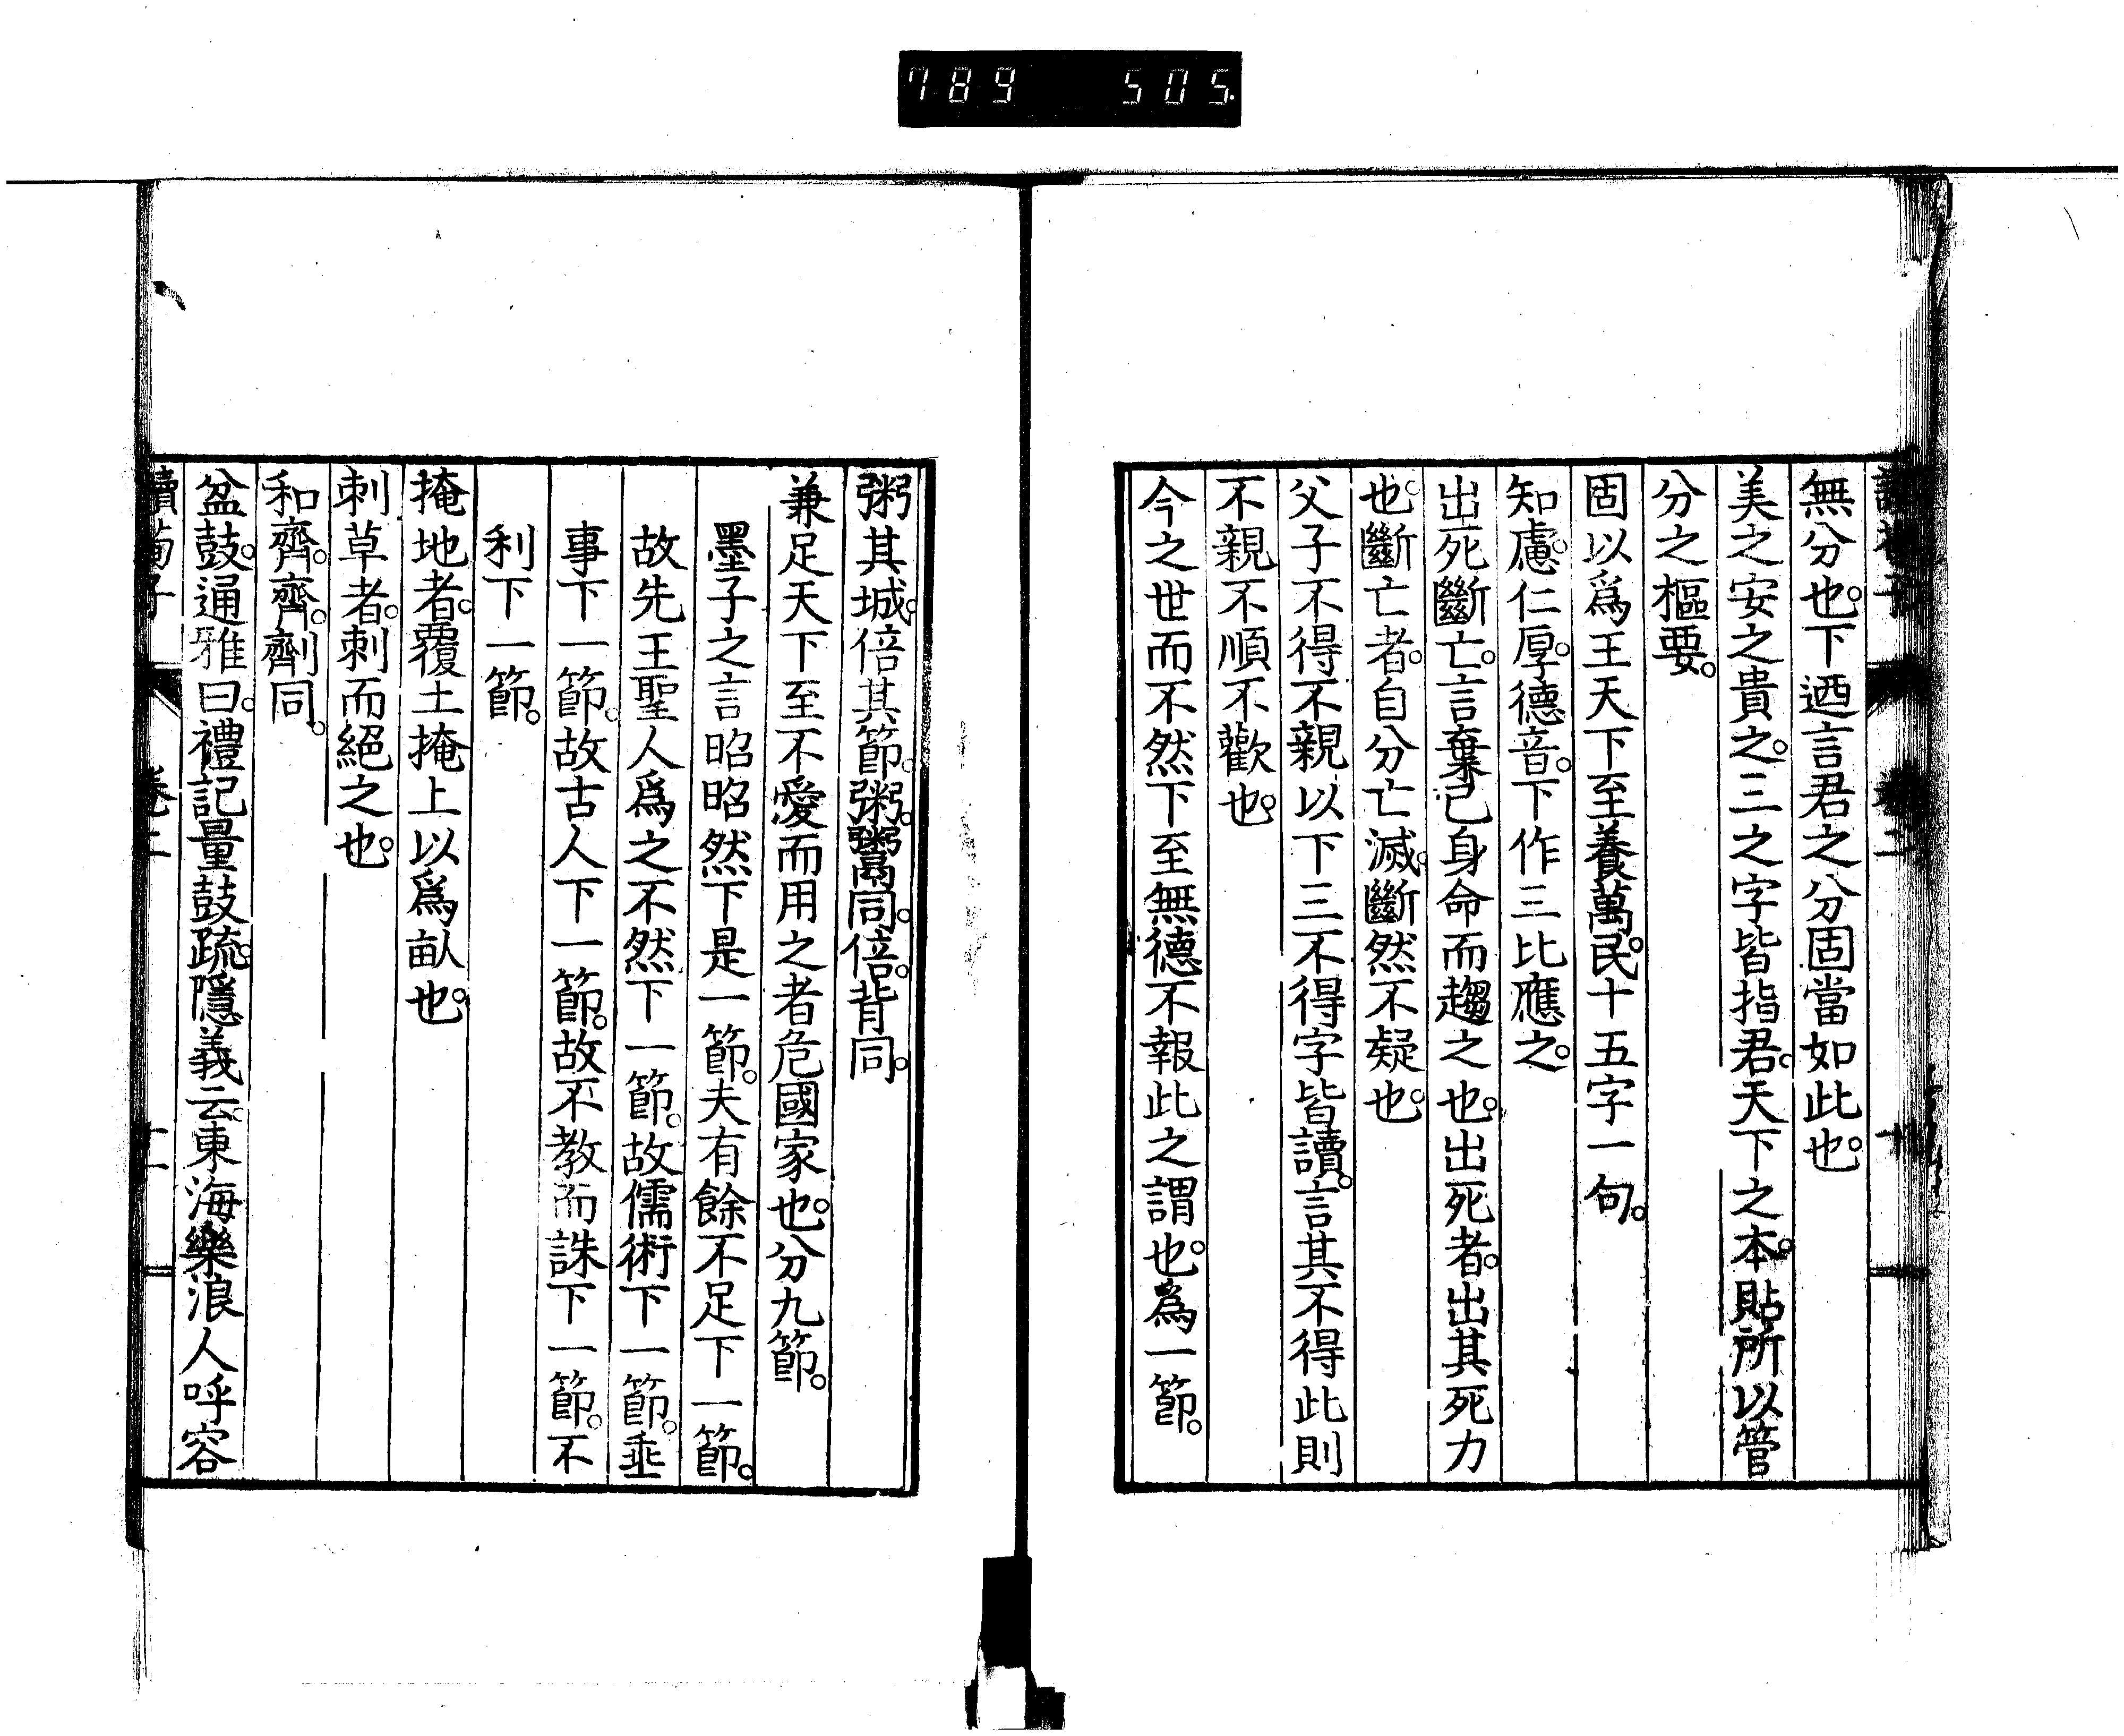 789 505
無分也。下迺言君之分固當如此也。
美之安之貴之。三之字皆指君。天下之本。貼所以管
分之樞要。
固以爲王天下至養萬民。十五字一句。
知慮。仁厚。德音。下作三比應之。
出死斷亡。言棄己身命而趨之也。出死者。出其死力
也。斷亡者。自分亡滅。斷然不疑也。
父子不得不親以下三不得字皆讀。言其不得此則
不親不順不歡也。
今之世而不然下至無德不報此之謂也。爲一節。
粥其城。倍其節。粥。鬻同。倍。背同。
兼足天下至不愛而用之者危國家也。分九節。
墨子之言昭昭然下是一節。夫有餘不足下一節。
故先王聖人爲之不然下一節。故儒術下一節。垂
事下一節。故古人下一節。故不教而誅下一節。不
利下一節。
掩地者。覆土掩上以爲畝也。
刺草者。刺而絕之也。
和齊。齊。劑同。
盆鼓。通雅曰。禮記量鼓疏。隱義云。東海樂浪人呼容
讀荀子 卷二 十二